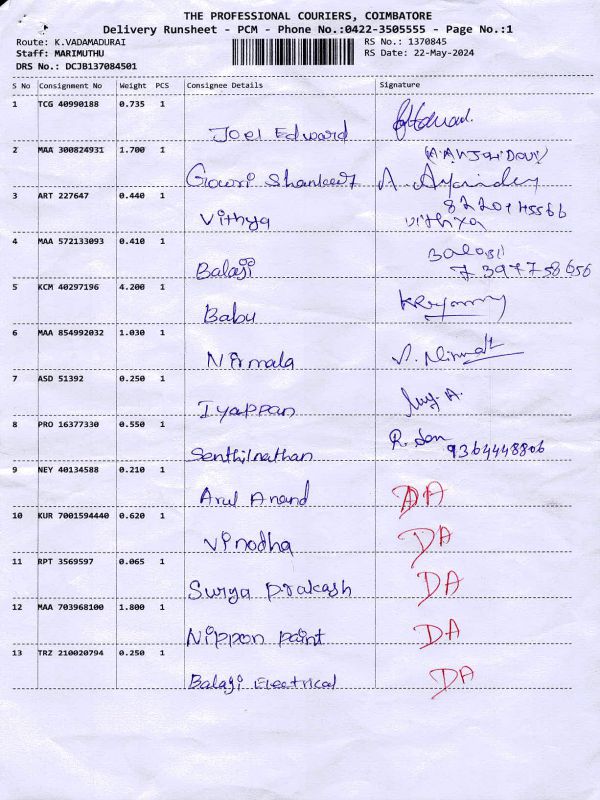 THE PROFESSIONAL COURIERS, COIMBATORE
Delivery Runsheet - PCM - Phone No.:0422-3505555 - Page No.:1
Route: K.VADAMADURAI
Staff: MARIMUTHU
DRS No.: DCJB137084501
RS No.: 1370845
RS Date: 22-May-2024
S No Consignment No Weight PCS Consignee Details Signature
1 TCG 40990188 0.735 1
Joel Edward
2 MAA 300824931 1.700 1
Gowri Shankar
3 ART 227647 0.440 1
Vithya vithya
4 MAA 572133093 0.410 1
Balaji Balaji
7397758656
5 KCM 40297196 4.200 1
Babu
6 MAA 854992032 1.030 1
Nirmala
7 ASD 51392 0.250 1
Iyappan
8 PRO 16377330 0.550 1
Senthilnathan 9364448806
9 NEY 40134588 0.210 1
Arul Anand DA
10 KUR 7001594440 0.620 1
Vinodha DA
11 RPT 3569597 0.065 1
Surya Prakash DA
12 MAA 703968100 1.800 1
Nippon paint DA
13 TRZ 210020794 0.250 1
Balaji Electrical DA